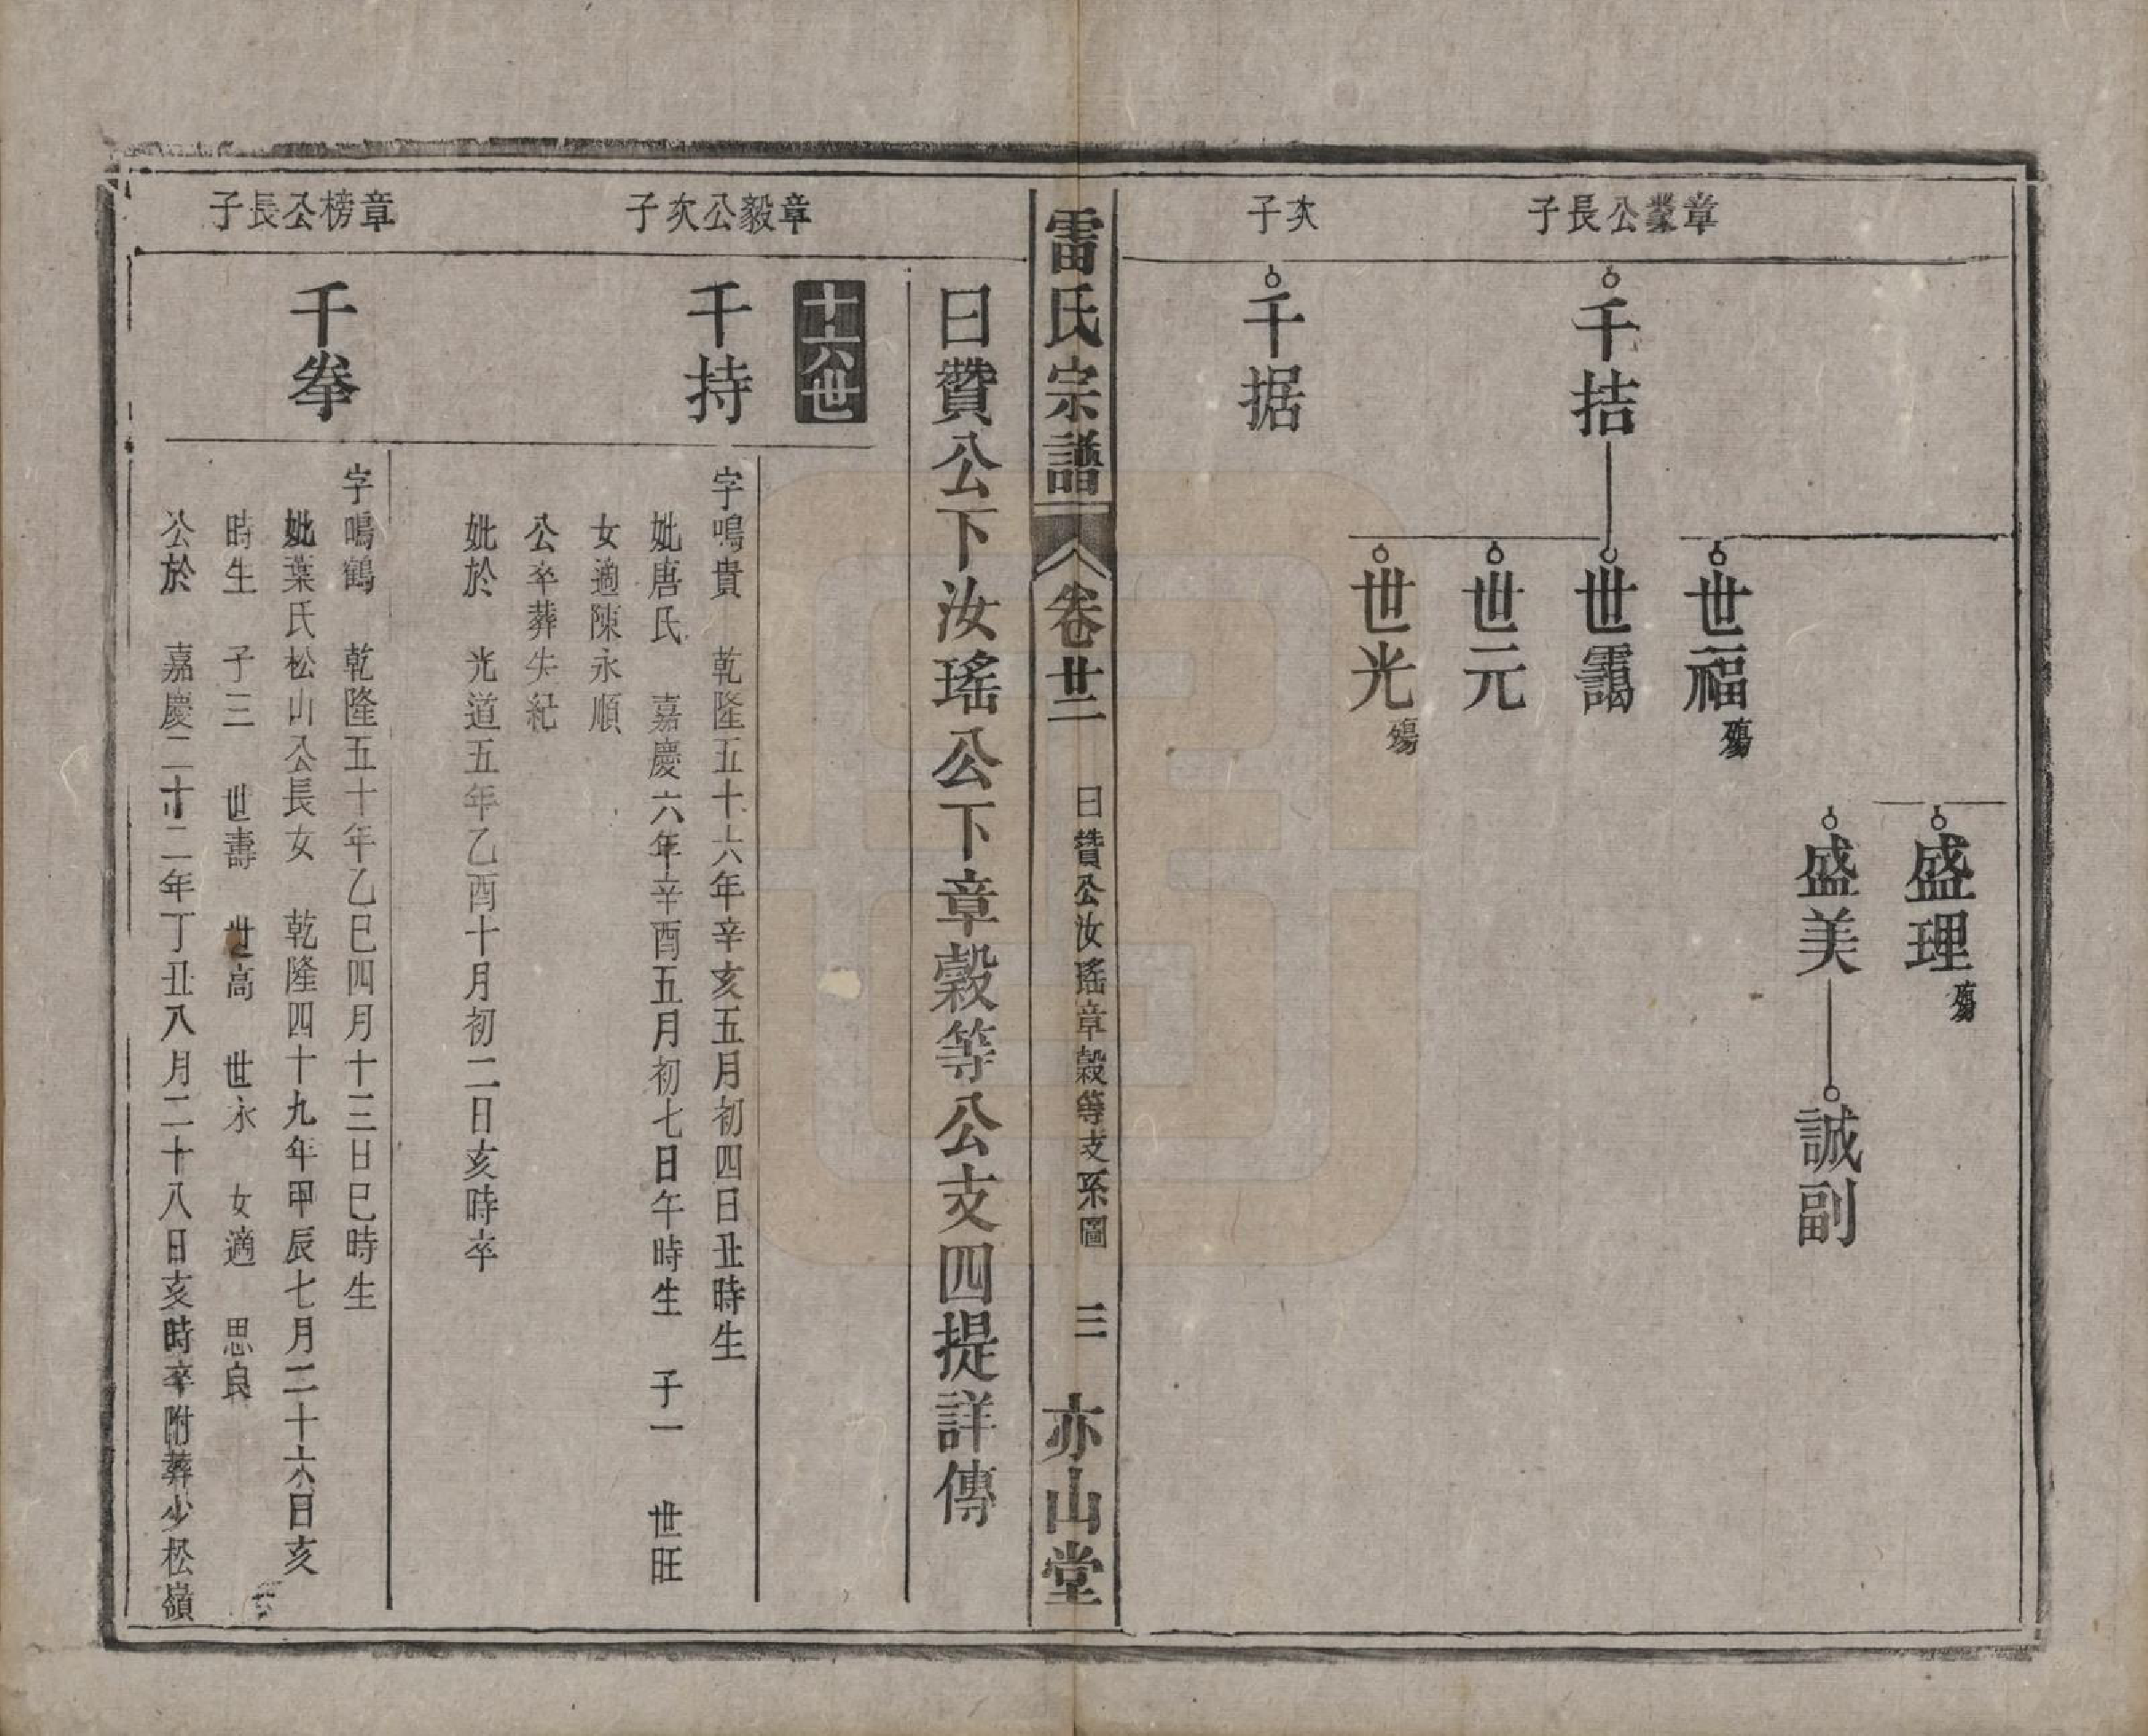 章業公長子
次子
盛理
殤
盛美
誠副
世福
殤
千拮
世靄
世元
世光
殤
千据
雷氏宗譜
卷廿二
曰贊公汝瑤章穀等支系圖
三
亦山堂
曰贊公下汝瑤公下章穀等公支四提詳傳
章毅公次子
章榜公長子
十六世
千持
字鳴貴 乾隆五十六年辛亥五月初四日丑時生
妣唐氏 嘉慶六年辛酉五月初七日午時生 子一 世旺
女適陳永順
公卒葬失紀
妣於 光道五年乙酉十月初二日亥時卒
千拳
字鳴鶴 乾隆五十年乙巳四月十三日巳時生
妣葉氏松山公長女 乾隆四十九年甲辰七月二十六日亥
時生 子三 世壽 世高 世永 女適 思良
公於 嘉慶二十二年丁丑八月二十八日亥時卒附葬少松嶺